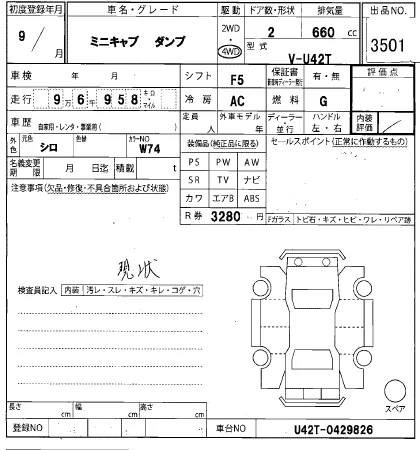 初度登録年月 車名・グレード 駆動 ドア数・形状 排気量 出品NO.
9/ 月 ミニキャブ ダンプ 2WD ・ 4WD 2 660 cc 3501
型式 V-U42T
車検 年 月 シフト F5 保証書 有・無 評価点
走行 9万6千958 キロ マイル 冷房 AC 燃料 G
車歴 自家用・レンタ・事業用( ) 定員 人 外車モデル 年 ディーラー・並行 ハンドル 左・右 内装評価
外色 元色 シロ 色替 カラーNO W74 装備品(純正品に限る) セールスポイント(正常に作動するもの)
名義変更期限 月 日迄 積載 t PS PW AW
注意事項(欠品・修復・不具合箇所および状態) SR TV ナビ
カワ エアB ABS
R券 3280 円 Fガラス トビ石・キズ・ヒビ・ワレ・リペア跡
現状
検査員記入 内装 汚レ・スレ・キズ・キレ・コゲ・穴
スペア
長さ cm 幅 cm 高さ cm
登録NO 車台NO U42T-0429826